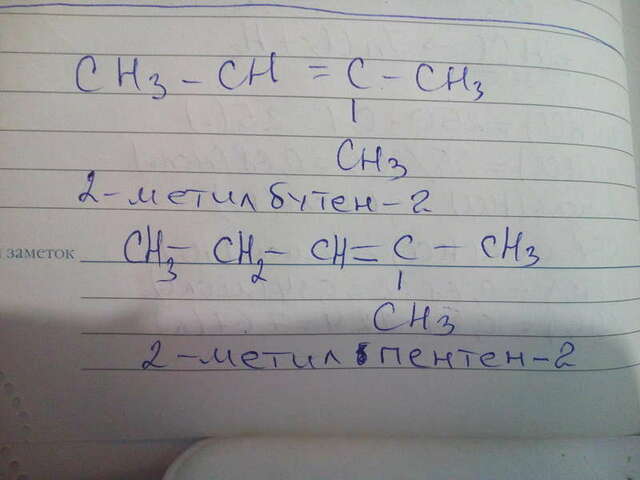 CH3 – CH = C – CH3
CH3
2-метилбутен-2
заметок
CH3 – CH2 – CH = C – CH3
CH3
2-метил пентен-2